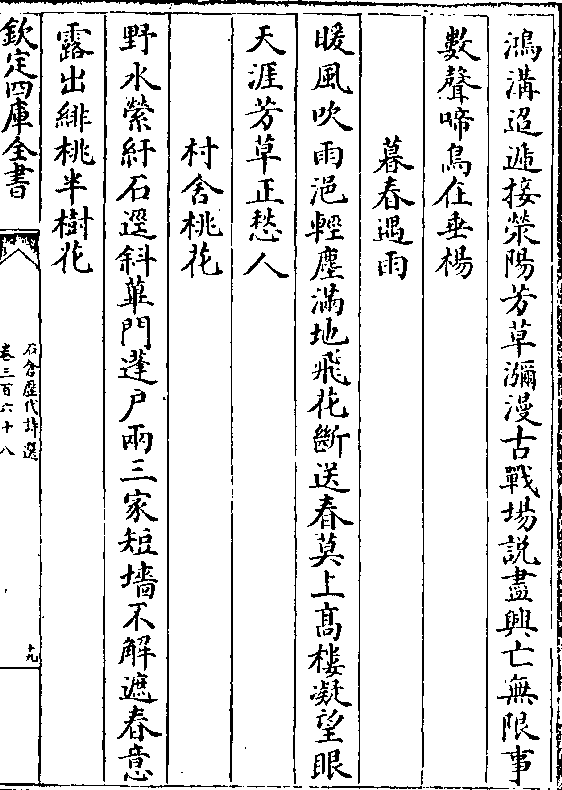 鴻溝迢遞接滎陽芳草瀰漫古戰場説盡興亡無限事
數聲啼鳥在垂楊
暮春遇雨
暖風吹雨浥輕塵滿地飛花斷送春莫上髙樓凝望眼
天涯芳草正愁人
村舍桃花
野水縈紆石逕斜蓽門蓬户兩三家短墻不解遮春意
露出緋桃半樹花
欽定四庫全書
石倉歷代詩選
卷三百六十八
十九